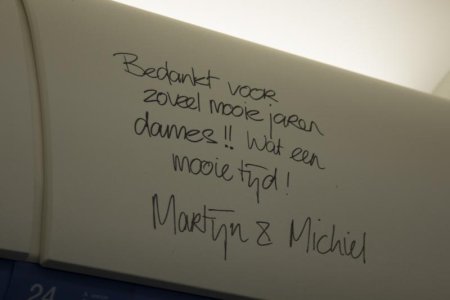 Bedankt voor
zoveel mooie jaren
dames!! Wat een
mooie tijd!
Martijn & Michiel
24